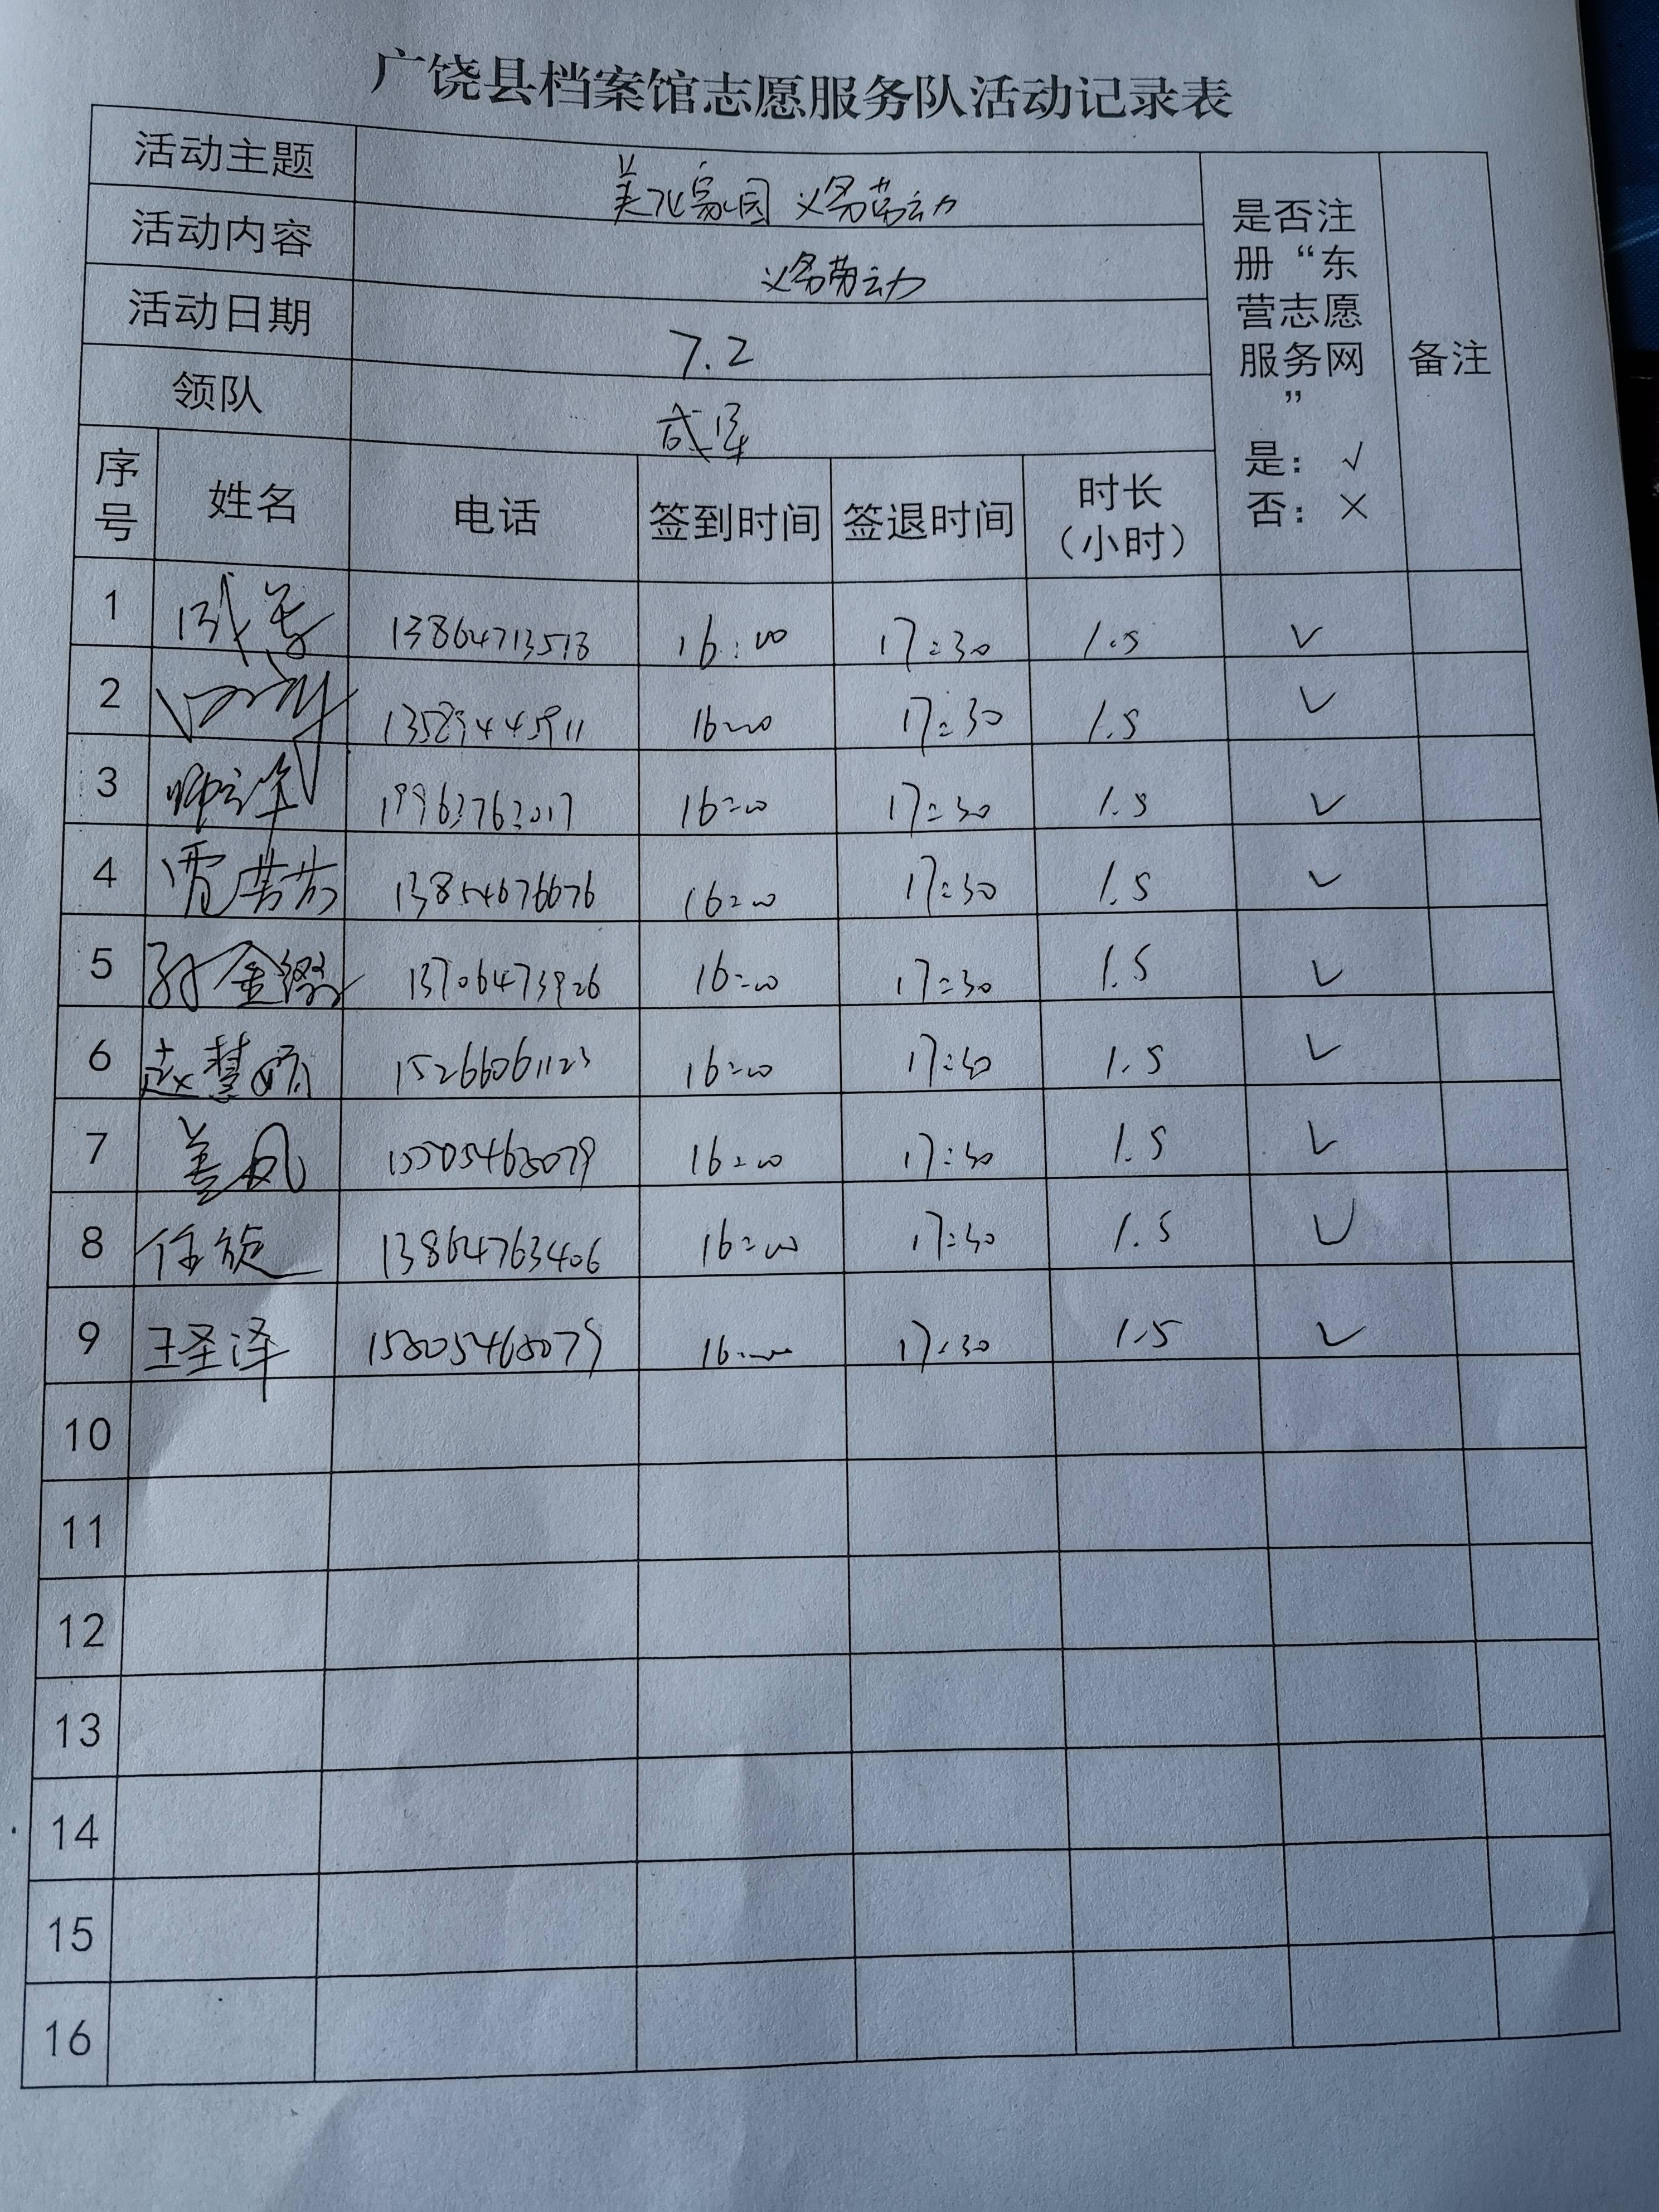 广饶县档案馆志愿服务队活动记录表
活动主题 美化家园 义务劳动
活动内容 义务劳动
活动日期 7.2
领队
是否注册“东营志愿服务网”
是：√
否：×
备注
序号 姓名 电话 签到时间 签退时间 时长（小时）
1 13864713513 16:00 17:30 1.5 √
2 13589445911 16:00 17:30 1.5 √
3 19963763017 16:00 17:30 1.5 √
4 贾芳芳 13854676676 16:00 17:30 1.5 √
5 孙金 13706473926 16:00 17:30 1.5 √
6 赵慧 15266061123 16:00 17:30 1.5 √
7 姜凤 16:00 17:30 1.5 √
8 任旋 13864763406 16:00 17:30 1.5 √
9 王圣泽 16:00 17:30 1.5 √
10
11
12
13
14
15
16